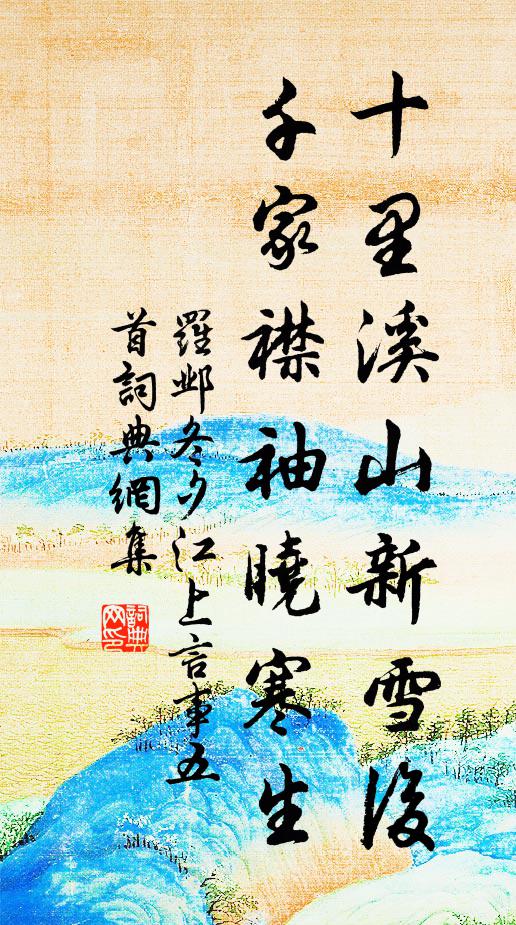 十里溪山新雪後
千家襟袖曉寒生
羅鄴冬夕江上言事五
首詞典網集
詞典網印